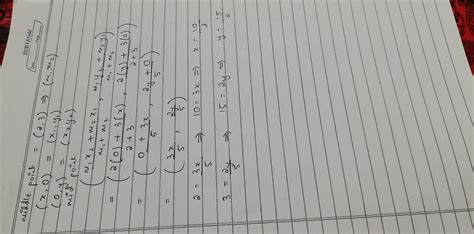 middle point = (2,3) ⇒ (m₁, m₂)
(x, 0) = (x₁, y₁)
(0, y) = (x₂ y₂)
mid point
(m₁x₂ + m₂x₁ / m₁ + m₂ , m₁y₂ + m₂y₁ / m₁ + m₂)
= (2(0) + 3(x) / 2+3 , 2(y) + 3(0) / 2+3)
= (0 + 3x / 5 , 2y + 0 / 5)
= (3x / 5 , 2y / 5)
2 = 3x / 5 ⇒ 10 = 3x ⇒ x = 10 / 3
3 = 2y / 5 ⇒ 15 = 2y ⇒ y = 15 / 2